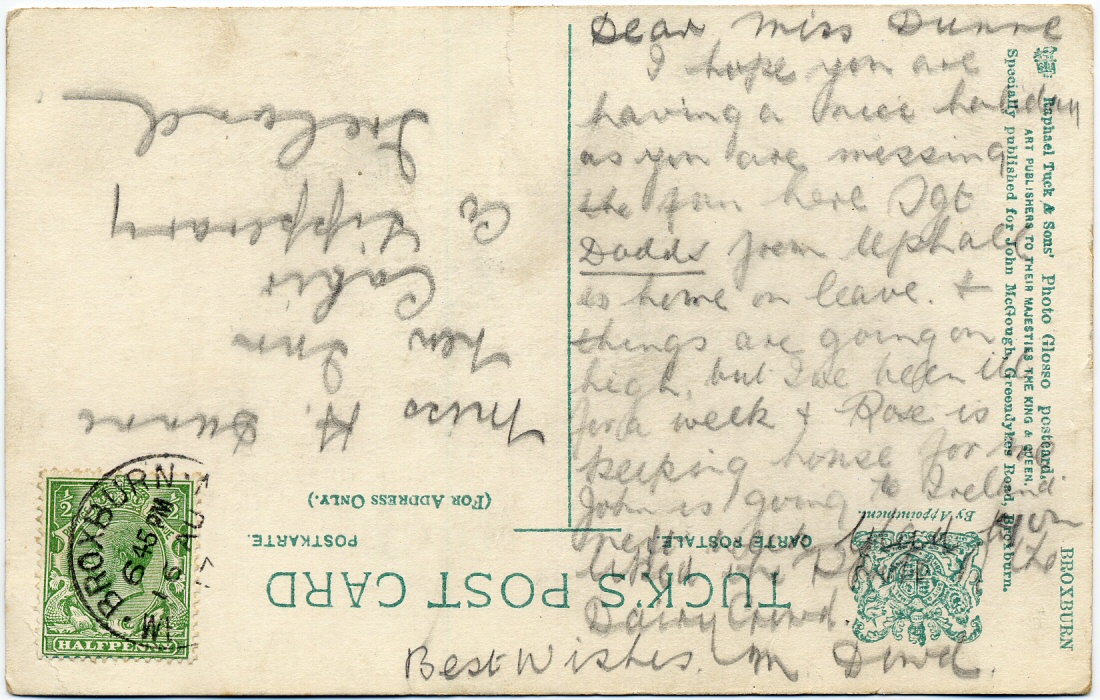 Dear Miss Dunne
I hope you are
having a nice holiday
as you are missing
the fun here Sgt
Dodds from Uphall
is home on leave. &
things are going on
high, but I've been ill
for a week & Rose is
keeping house for me
John is going to Ireland
next week
liked the
Dairy Crowd.
Best Wishes. M Dowd.
Miss H. Dunne
New Inn
Cahir
Co Tipperary
Ireland
TUCK'S POST CARD
CARTE POSTALE.
POSTKARTE.
(FOR ADDRESS ONLY.)
By Appointment.
Raphael Tuck & Sons' Photo Glosso postcard.
ART PUBLISHERS TO THEIR MAJESTIES THE KING & QUEEN.
Specially published for John McGough, Greendykes Road, Broxburn.
BROXBURN
BROXBURN
6 45 PM
AU
HALFPENNY